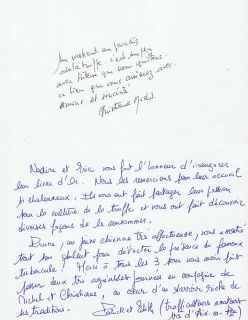 Un weekend en paradis
de la truffe c'est un peu
avec que nous quittons
ce lien que vous animez avec
amour et
Christiane Michel.
Nadine et Eric vous font l'honneur d'inaugurer
leur livre d'Or. Nous les remercions pour leur accueil
si chaleureux. Ils nous ont fait partager leur passion
pour la culture de la truffe et nous ont fait découvrir
diverses façons de la consommer.
Prune, sa petite chienne très affectueuse, nous a montré
tout son talent pour détecter la présence du fameux
tubercule! Merci à tous les 3 pour nous avoir fait
passer deux très agréables journées en compagnie de
Michel et Christiane, au cœur d'un terroir riche de
ses traditions. et Edith (trufficulteurs amateurs
d'Aix en